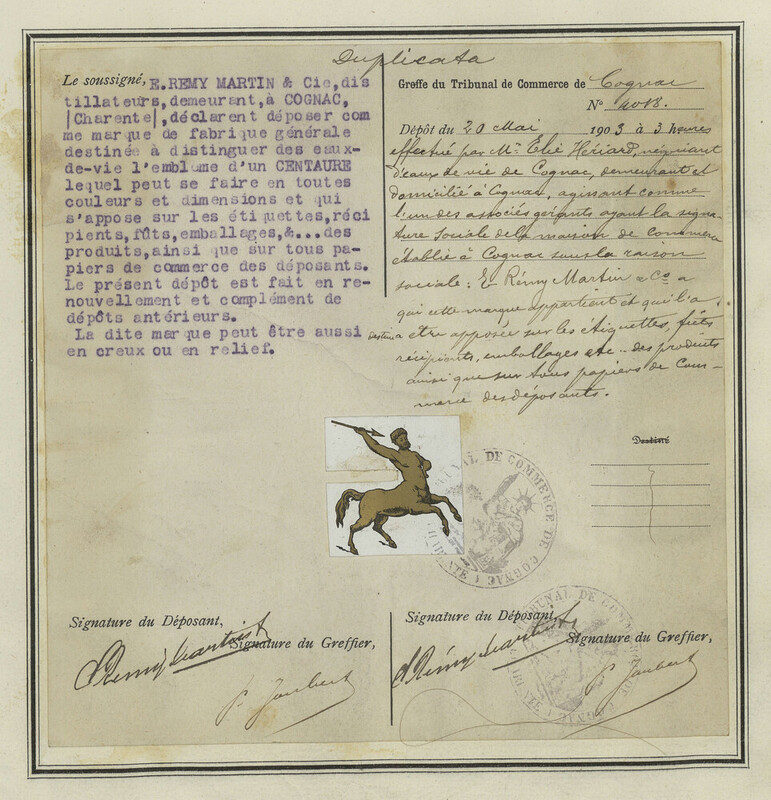 Duplicata
Le soussigné, E.REMY MARTIN & Cie, dis
tillateurs, demeurant, à COGNAC,
|Charente|, déclarent déposer com
me marque de fabrique générale
destinée à distinguer des eaux-
de-vie l'emblème d'un CENTAURE
lequel peut se faire en toutes
couleurs et dimensions et qui
s'appose sur les étiquettes, réci
pients, fûts, emballages, &... des
produits, ainsi que sur tous pa-
piers de commerce des déposants.
Le présent dépôt est fait en re-
nouvellement et complément de
dépôts antérieurs.
La dite marque peut être aussi
en creux ou en relief.
Greffe du Tribunal de Commerce de Cognac
N° 4018.
Dépôt du 20 Mai 1903 à 3 heures
effectué par Mr. Elie Hériard, négociant
d'eaux de vie de Cognac, demeurant et
domicilié à Cognac, agissant comme
l'un des associés gérants ayant la signa-
ture sociale de la maison de commerce
établie à Cognac sous la raison
sociale: E. Rémy Martin & Co a
qui cette marque appartient et qui l'a
destiné a etre apposée sur les étiquettes, fûts
récipients, emballages etc.. des produits
ainsi que sur tous papiers de Com-
merce des déposants.
Destiné
TRIBUNAL DE COMMERCE DE COGNAC
CHARENTE
Signature du Déposant,
E. Remy Martin & Co
Signature du Greffier,
P. Joubert
Signature du Déposant,
E. Rémy Martin & Co
Signature du Greffier,
P. Joubert
TRIBUNAL DE COMMERCE DE COGNAC
CHARENTE